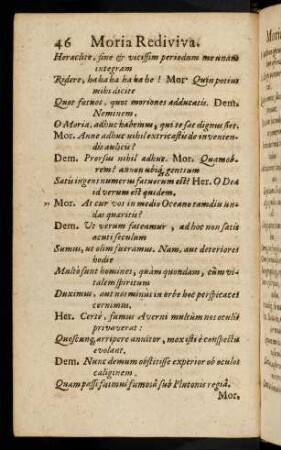 46 Moria Rediviva.
Heraclite, sine & vicissim periodum me unam
integram
Ridere, ha ha ha ha ha he! Mor. Quin potius
mihi dicite
Quot fatuos, quot moriones adducatis. Dem.
Neminem.
O Moria, adhuc habemus, qui te sat dignus siet.
Mor. Anne adhuc nihil extricastis de invenien-
dis aulicis?
Dem. Prorsus nihil adhuc. Mor. Quamob-
rem? annon ubiq; gentium
Satis ingens numerus fatuorum est? Her. O Dea
id verum est quidem.
Mor. At cur vos in medio Oceano tamdiu iun-
das quaritis?
Dem. Ut verum fateamur, adhoc non satis
acuti seculum
Sumus, ut olim fueramus. Nam, aut deteriores
hodie
Multò sunt homines, quàm quondam, cùm vi-
talem spiritum
Duximus, aut nos minùs in orbe hoc perspicaces
cernimus.
Her. Certè, fumus Averni multùm nos oculis
privaverat:
Quoscunq; arripere annitor, mox isti è conspectu
evolant.
Dem. Nunc demum obstitisse experior ob oculos
caliginem,
Quam passi fuimus fumosâ sub Plutonis regiâ.
Mor.